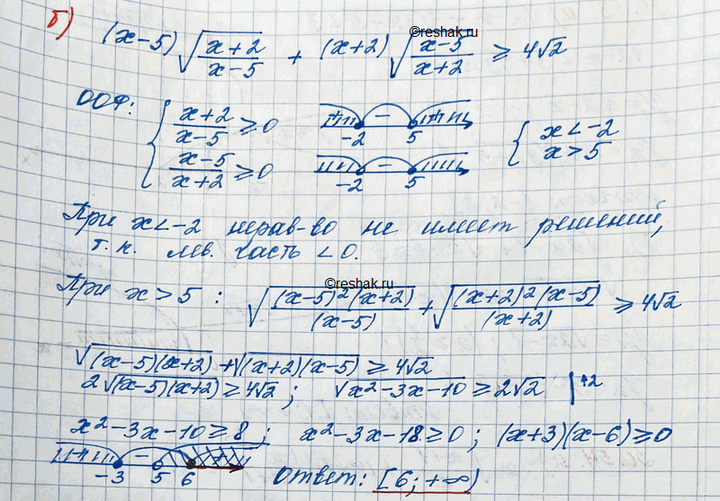 ©reshak.ru
б)
(x-5)√((x+2)/(x-5)) + (x+2)√((x-5)/(x+2)) ≥ 4√2
ООФ: { (x+2)/(x-5) ≥ 0 + - + -2 5 { x < -2
(x-5)/(x+2) ≥ 0 - -2 5 x > 5
При x < -2 нерав-во не имеет решений,
т.к. лев. часть < 0.
©reshak.ru
При x > 5 : √((x-5)²(x+2)/(x-5)) + √((x+2)²(x-5)/(x+2)) ≥ 4√2
√((x-5)(x+2)) + √((x+2)(x-5)) ≥ 4√2
2√((x-5)(x+2)) ≥ 4√2 ; √(x²-3x-10) ≥ 2√2 |↑2
x²-3x-10 ≥ 8 ; x²-3x-18 ≥ 0 ; (x+3)(x-6) ≥ 0
+ - + -3 5 6 Ответ: [6; +∞)